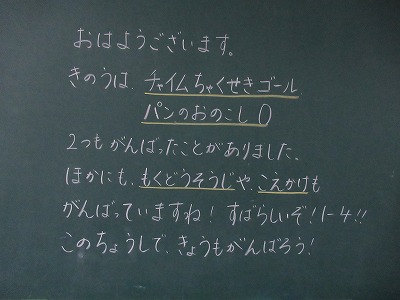 おはようございます。
きのうは、チャイムちゃくせきゴール
パンのおのこし0
2つもがんばったことがありました。
ほかにも、もくどうそうじや、こえかけも
がんばっていますね！すばらしいぞ！1-4!!
このちょうしで、きょうもがんばろう！